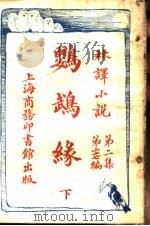 林譯小說
第二集
第壱編
鸚鵡緣
下
上海商務印書館出版